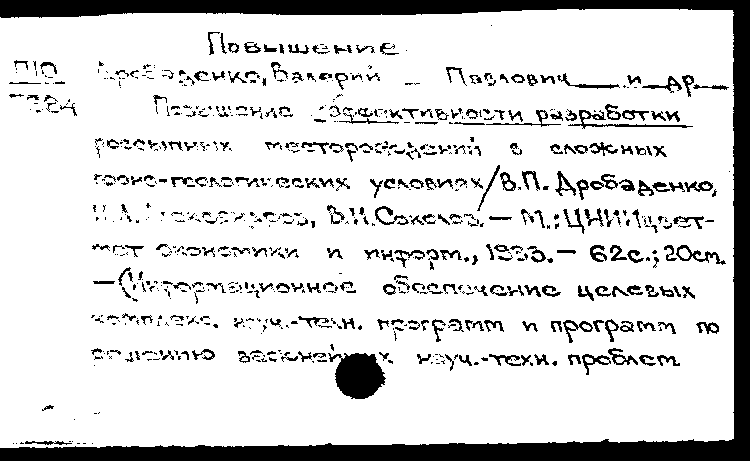 Повышение
П10 Дробаденко, Валерий Павлович и др.
Повышение эффективности разработки
россыпных месторождений в сложных
горно-геологических условиях / В.П. Дробаденко,
В.И. Соколов. — М.: ЦНИИцвет-
мет экономики и информ., — 62с.; 20см.
— (Информационное обеспечение целевых
комплекс. науч.-техн. программ и программ по
решению важнейших науч.-техн. проблем